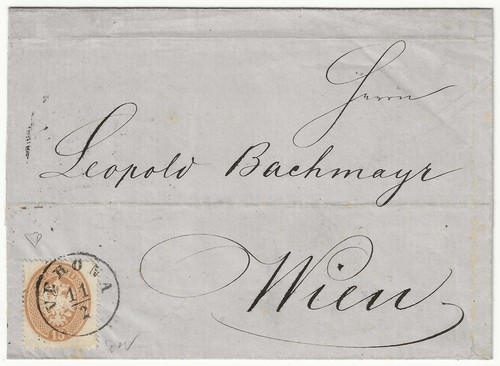 Herrn
Leopold Bachmayr
Wien
VERONA
1/2
15